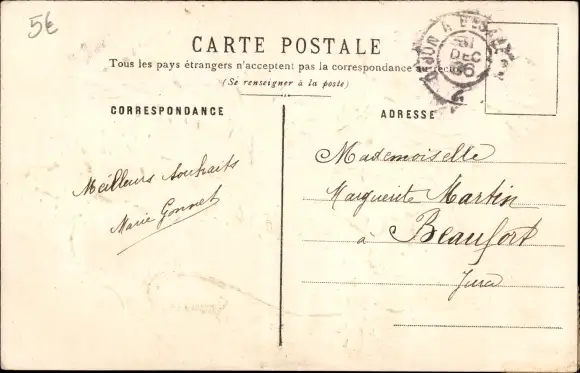 5€
CARTE POSTALE
Tous les pays étrangers n'acceptent pas la correspondance au recto
(Se renseigner à la poste)
31
DEC
06
CORRESPONDANCE
ADRESSE
Meilleurs souhaits
Marie Gonnet
Mademoiselle
Marguerite Martin
à Beaufort
Jura